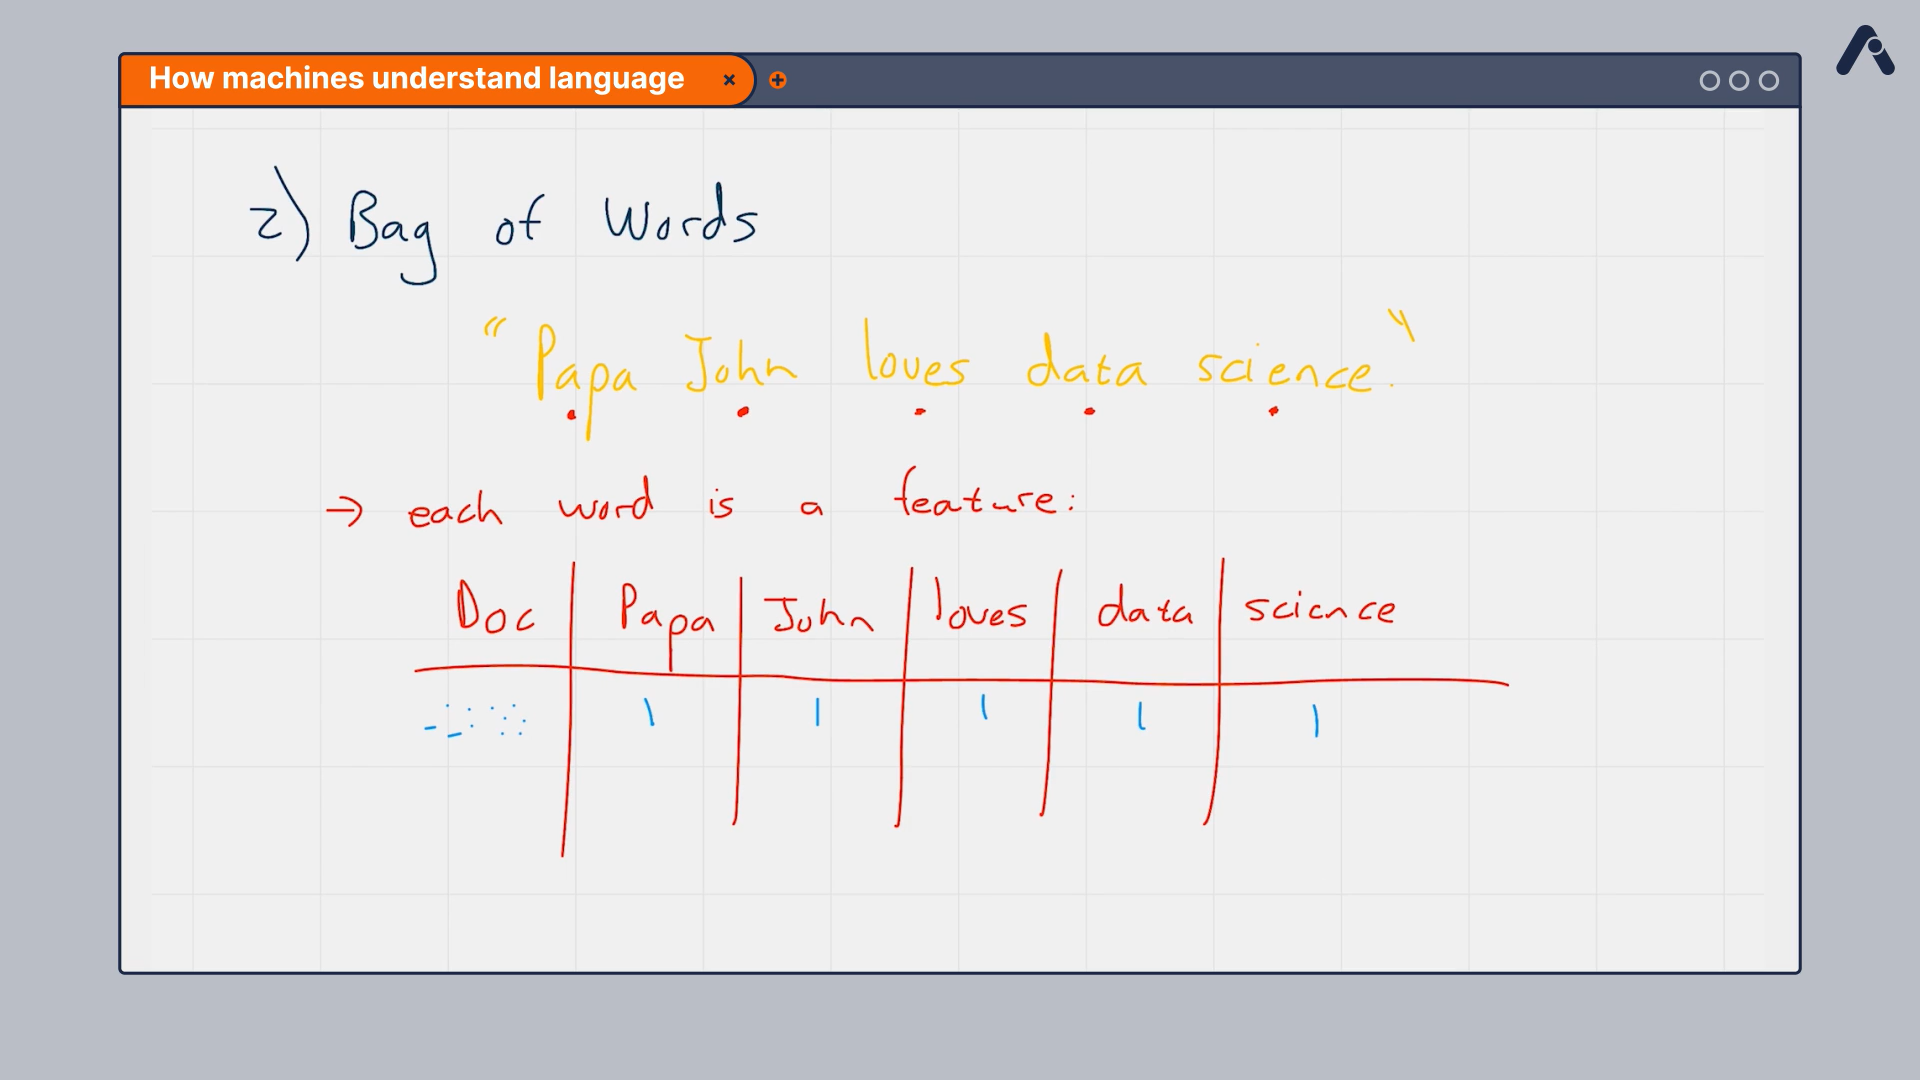 How machines understand language
2) Bag of Words
"Papa John loves data science."
→ each word is a feature:
Doc Papa John loves data science
1 1 1 1 1